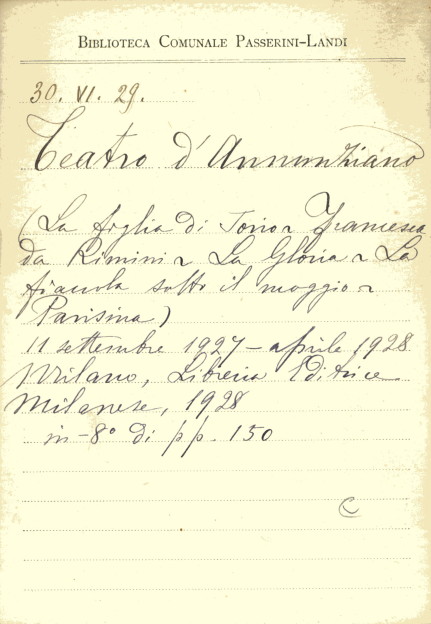 BIBLIOTECA COMUNALE PASSERINI-LANDI
30. VI. 29.
Teatro d'Annunziano
(La figlia di Jorio ~ Francesca
da Rimini ~ La Gloria ~ La
fiaccola sotto il moggio ~
Parisina)
11 settembre 1927 - aprile 1928
Milano, Libreria Editrice
Milanese, 1928
in-8° di pp. 150
C